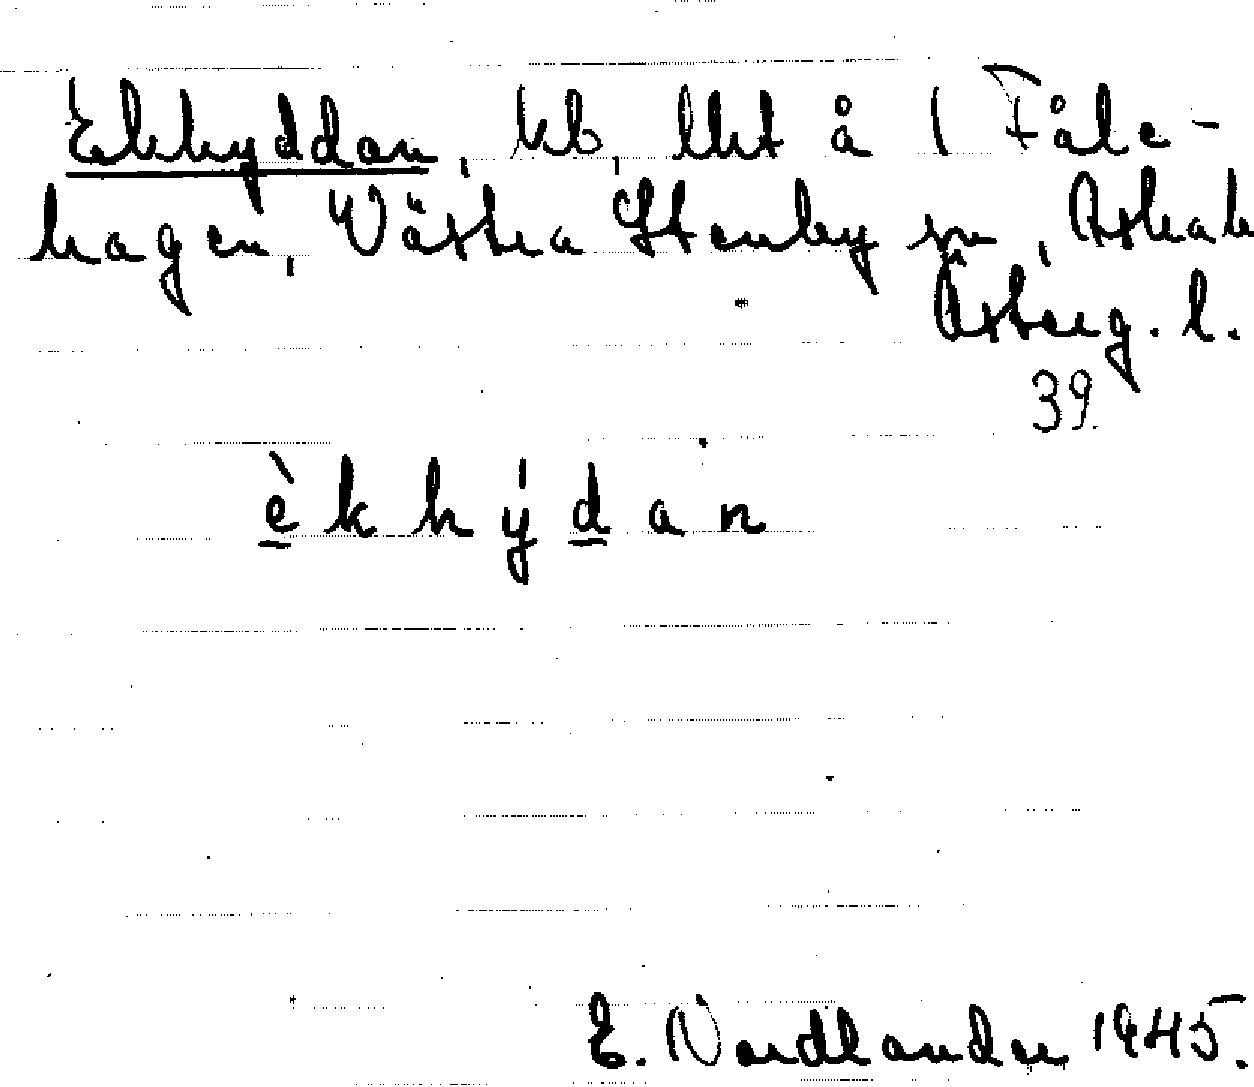 Ekhyddan, kb, lht å 1 Fåle-
hagen, Västra Stenby sn, Askah
Östberg. l.
39.
èkhýdan
E. Nordlander 1945.